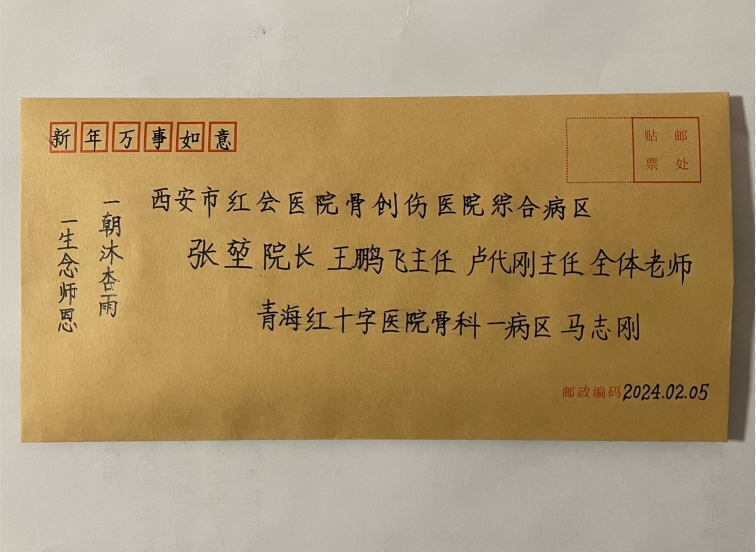 新年万事如意
贴邮
票处
西安市红会医院骨创伤医院综合病区
张堃院长 王鹏飞主任 卢代刚主任 全体老师
青海红十字医院骨科一病区 马志刚
一朝沐杏雨
一生念师恩
邮政编码2024.02.05